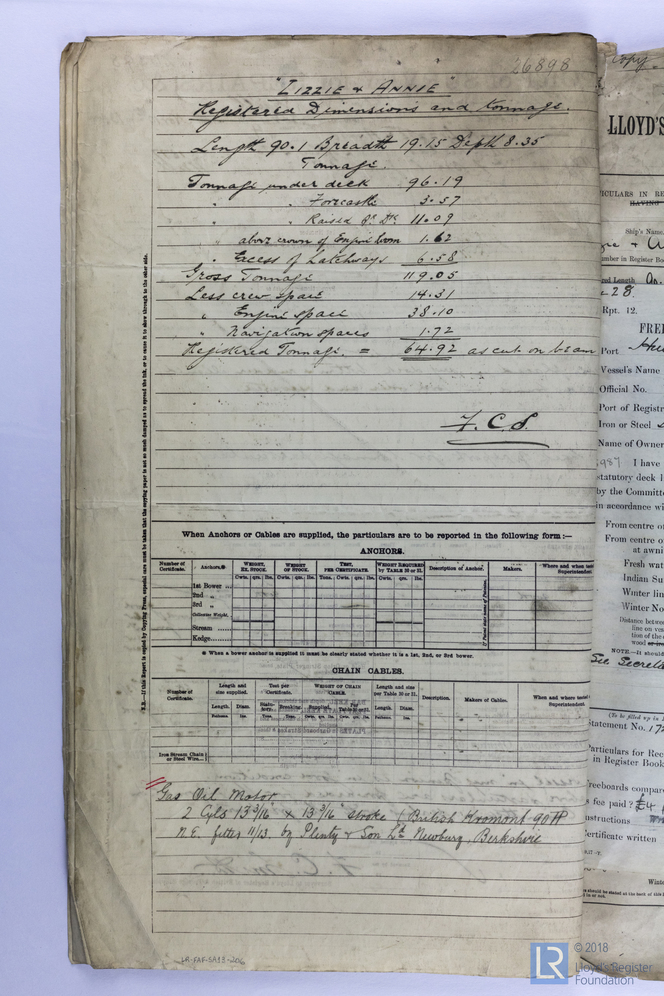 26898
"LIZZIE & ANNIE"
Registered Dimensions and tonnage.
Length 90.1 Breadth 19.15 Depth 8.35
Tonnage.
Tonnage under deck 96.19
" " Forecastle 3.57
" " Raised Qr Dk 11.09
" above crown of Engine room 1.62
" Excess of Hatchways 6.58
Gross Tonnage 119.05
Less crew space 14.31
" Engine space 38.10
" Navigation spaces 1.72
Registered Tonnage. = 64.92 as cut on beam
N.B.—If this Report is copied by Copying Press, especial care must be taken that the copying paper is not so much damped as to spread the ink, or to cause it to show through to the other side.
When Anchors or Cables are supplied, the particulars are to be reported in the following form :—
ANCHORS.
Number of Certificate. Anchors.* WEIGHT, EX. STOCK. WEIGHT OF STOCK. TEST, PER CERTIFICATE. WEIGHT REQUIRED by TABLE 20 or 21. Description of Anchor. Makers. Where and when
Superintendent.
Cwts. qrs. lbs. Cwts. qrs. lbs. Tons. Cwts. qrs. lbs. Cwts. qrs. lbs.
1st Bower
2nd "
3rd "
Collective Weight.
Stream
Kedge
* When a bower anchor is supplied it must be clearly stated whether it is a 1st, 2nd, or 3rd bower.
CHAIN CABLES.
Number of Certificate. Length and size supplied. Test per Certificate. WEIGHT OF CHAIN CABLE. Length and size per Table 20 or 21. Description. Makers of Cables. When and where tested
Superintendent.
Length. Diam. Statutory. Breaking. Supplied. Per Table 20 or 21. Length. Diam.
Iron Stream Chain or Steel Wire...
Gas Oil Motor
2 Cyls 13 3/16 x 13 3/16 stroke (British Kromont 90 HP
N.E. fitted 11/13. by Plenty & Son Ld Newbury, Berkshire
LLOYD'S
Ship's Name.
Port
Vessel's Name
Official No.
Port of Registr
Iron or Steel
Name of Owner
I have
statutory deck l
by the Committe
in accordance wi
From centre o
From centre o
at awni
Fresh wat
Indian Su
Winter lin
Winter No
See Secreta
Statement No. 17
Particulars for Rec
in Register Book
Freeboards compare
s fee paid ? £4
nstructions
ertificate written
LR-FAF-SA13-206
© 2018
Lloyd's Register
Foundation
LR